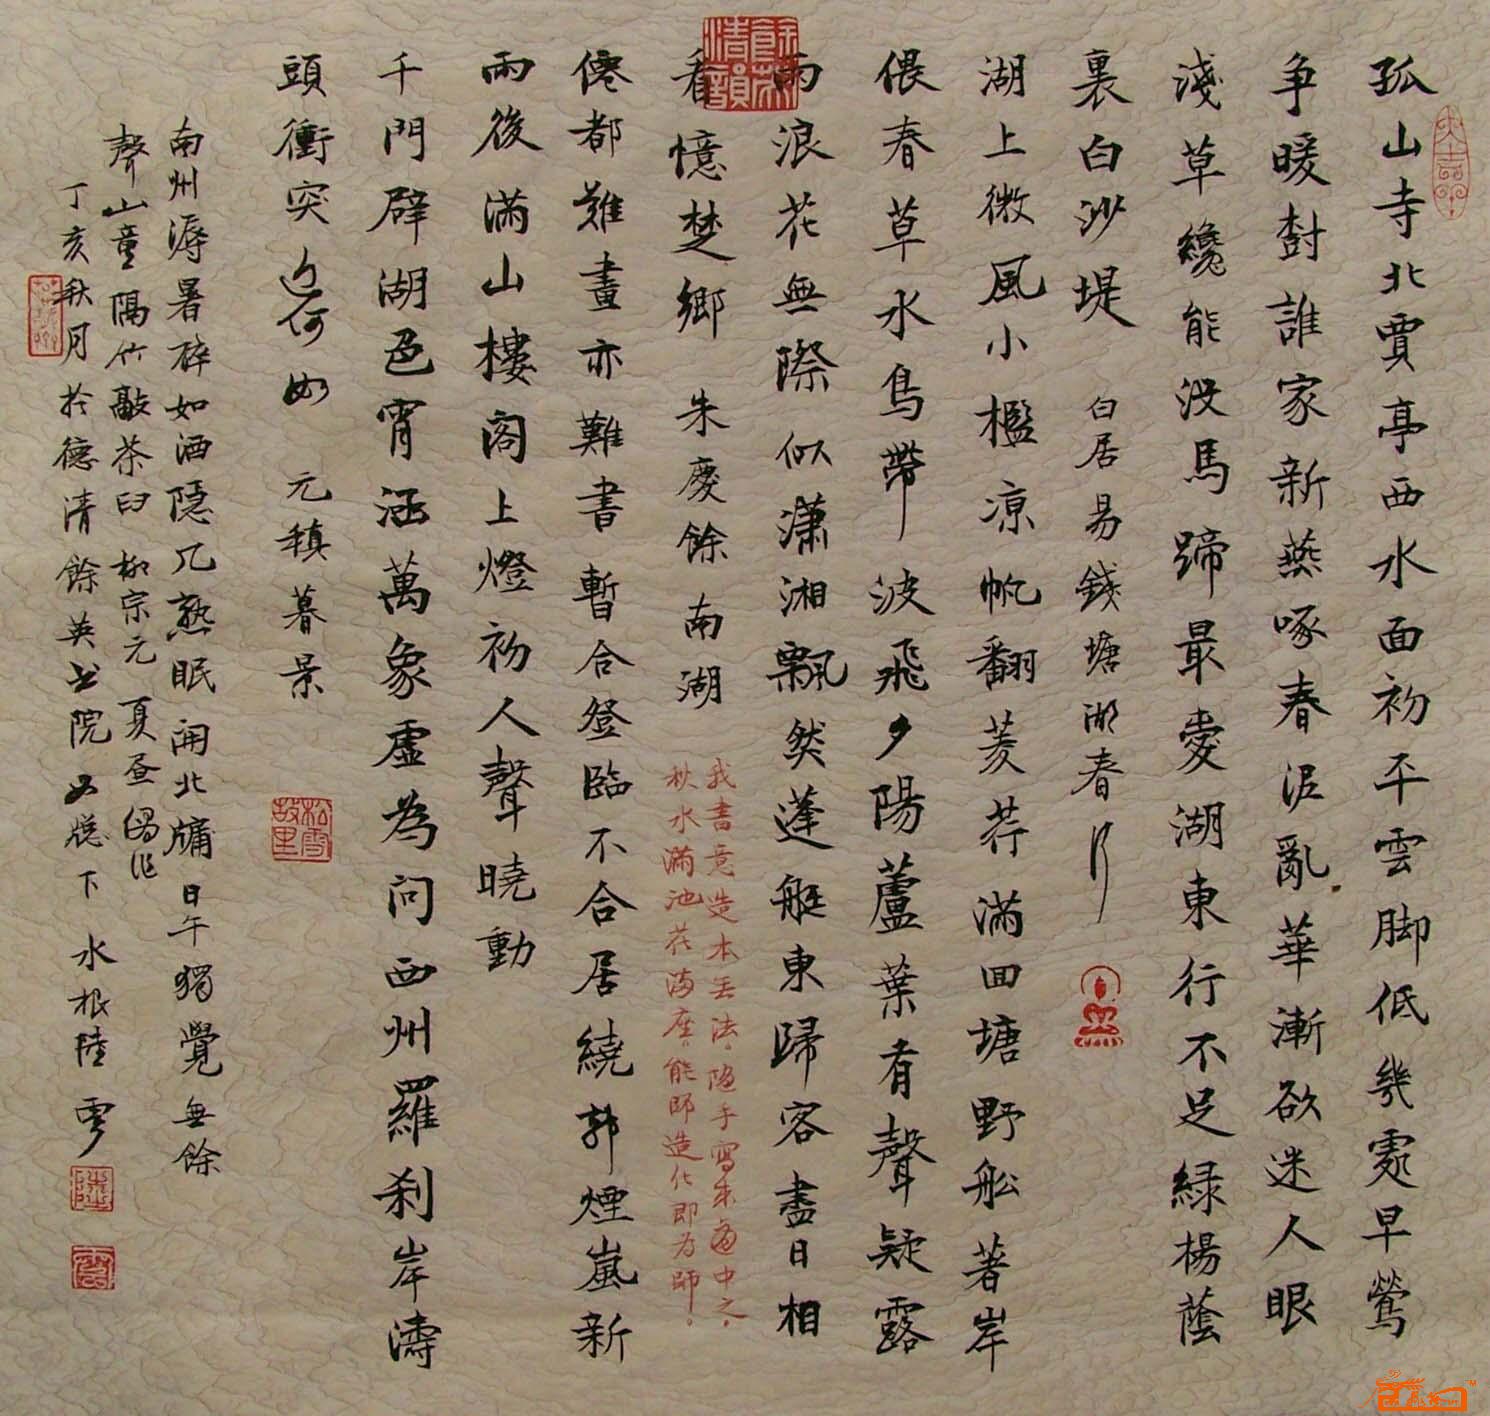 孤山寺北賈亭西水面初平雲脚低幾處早鶯
爭暖樹誰家新燕啄春泥亂華漸欲迷人眼
淺草纔能沒馬蹄最愛湖東行不足緑楊蔭
裏白沙堤 白居易錢塘湖春行
湖上微風小檻凉帆翻菱荇滿回塘野舩著岸
偎春草水鳥帶波飛夕陽蘆葉有聲疑露
雨浪花無際似瀟湘飄然蓬艇東歸客盡日相
看憶楚鄉 朱慶餘南湖
我書意造本無法隨手寫來適中之
秋水滿池花滿座能師造化即為師
僊都難畫亦難書暫合登臨不合居繞郭煙嵐新
雨後滿山樓閣上燈初人聲曉動
千門辟湖色宵涵萬象虛為問西州羅刹岸濤
頭衝突近何如 元稹暮景
南州溽暑醉如酒隱几熟眠開北牖日午獨覺無餘
聲山童隔竹敲茶臼 柳宗元 夏晝偶作
丁亥秋月於德清餘英書院 下 水根陸雪
餘英清韻
松雪故里